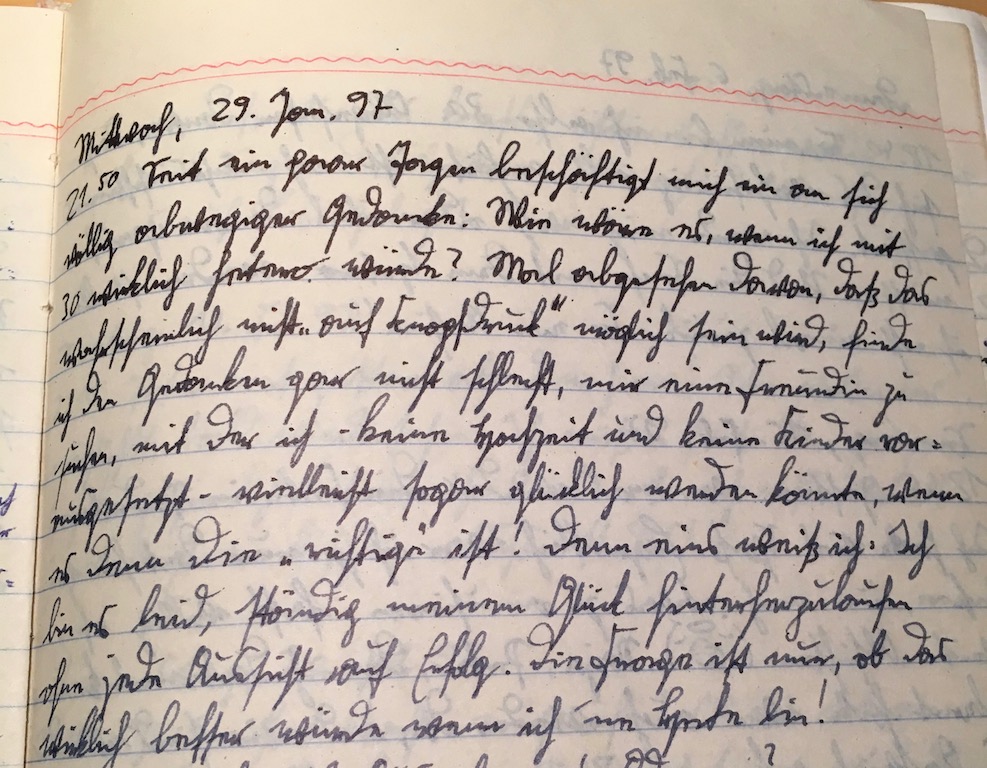 Mittwoch, 29. Jan. 97
21.50 Seit ein paar Tagen beschäftigt mich ein an sich
völlig abwegiger Gedanke: Wie wäre es, wenn ich mit
30 wirklich hetero würde? Mal abgesehen davon, daß das
wahrscheinlich nicht „auf Knopfdruck“ möglich sein wird, finde
ich den Gedanken gar nicht schlecht, mir eine Freundin zu
suchen, mit der ich - keine Hochzeit und keine Kinder vor=
ausgesetzt - vielleicht sogar glücklich werden könnte, wenn
es denn die „richtige“ ist! Denn eins weiß ich: Ich
bin es leid, ständig meinem Glück hinterherzulaufen
ohne jede Aussicht auf Erfolg. Die Frage ist nur, ob das
wirklich besser würde wenn ich 'ne Hete bin!